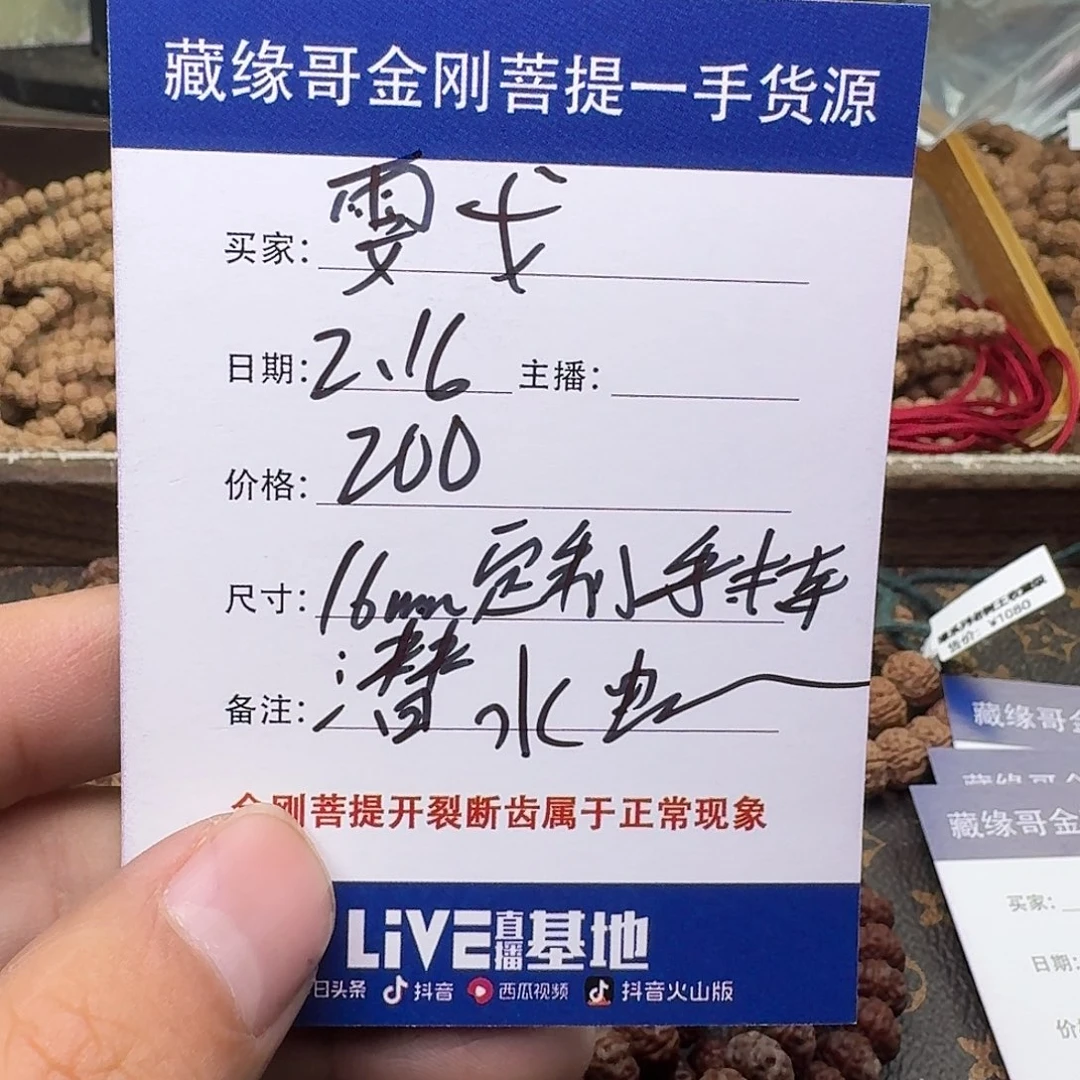 藏缘哥金刚菩提一手货源
买家: 雯弋
日期: 2.16 主播:
价格: 200
尺寸: 16mm 定制手串
备注: 潜水虫
金刚菩提开裂断齿属于正常现象
LiVE直播基地
日头条 抖音 西瓜视频 抖音火山版
货价: ¥1080
藏缘哥金
藏缘哥金
藏缘哥金
买家:
日期:
价